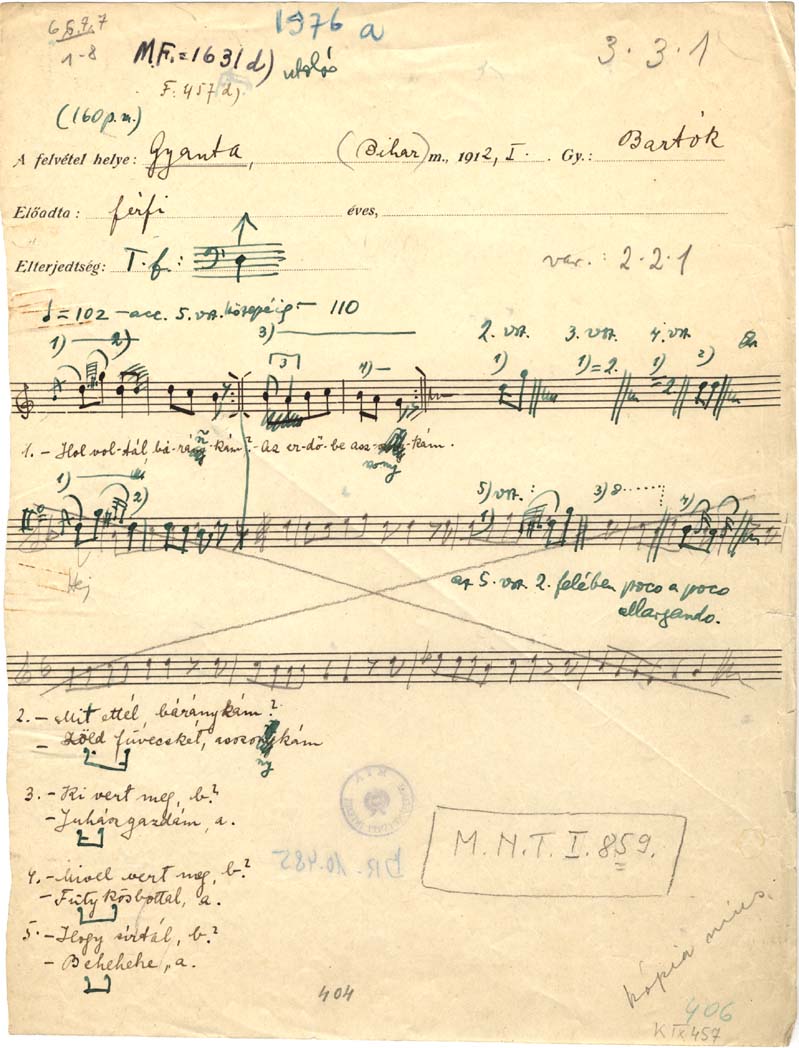 6 5. 7. 7
1-8
1976 a
M.F. = 1631 d)
utolsó
F. 457 d).
3. 3. 1
(160 p. m.)
A felvétel helye: Gyanta, (Bihar) m., 1912, I. Gy.: Bartók
Előadta: férfi éves,
Elterjedtség: T. f.:
var.: 2. 2. 1
= 102 – acc. 5. vsz. közepéig – 110
1) 2) 3) 2. vsz. 3. vsz. 4. vsz.
3 4) 1) 1) = 2. 1) = 2 2)
1. – Hol vol-tál, bá-rány-kám? – Az er-dő-be asz-szony-kám.
1) 2) 5) vsz. 1) 3) 8 4)
Hej
az 5. vsz. 2. felében poco a poco
allargando.
2. – Mit ettél, báránykám?
– Zöld füvecskét, asszonykám
ny
3. – Ki vert meg, b.?
– Juhászgazdám, a.
4. – Mivel vert meg, b.?
– Fütykösbottal, a.
5. – Hogy sírtál, b.?
– Behehehe, a.
BR. 10.485
M. N. T. I. 859.
kópia nincs.
404
406
K IX 457